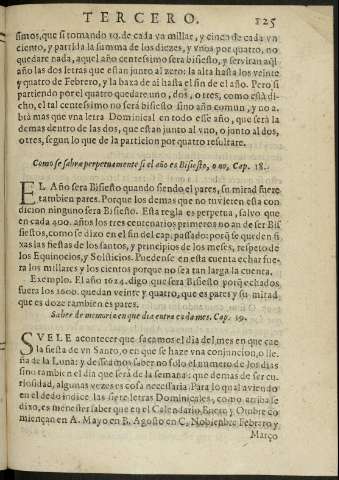 TERCERO. 125
simos, que si tomando 10. de cada vn millar, y cinco de cada vn
ciento, y partida la summa de los diezes, y vnos por quatro, no
quedare nada, aquel año centesimo sera bisiesto, y serviran aql
año las dos letras que estan junto al zero: la alta hasta los veinte
y quatro de Febrero, y la baxa de ai hasta el fin de el año. Pero si
partiendo por el quatro quedare vno, dos, o tres, como està di-
cho, el tal centesimo no serà bisiesto sino año comun, y no a-
brà mas que vna letra Dominical en todo esse año, que serà la
de mas dentro de las dos, que estan junto al vno, o junto al dos,
o tres, segun lo que de la particion por quatro resultare.
Como se sabra perpetuamente si el año es Bisiesto, o no, Cap. 18.
EL Año sera Bisiesto quando siendo el pares, su mitad fuere
tambien pares. Porque los demas que no tuvieren esta con
dicion ninguno sera Bisiesto. Esta regla es perpetua, salvo que
en cada 400. años los tres centenarios primeros no an de ser Bis
siestos, como se dixo en el fin del cap. passado: porq̃ se queden fi
xas las fiestas de los santos, y principios de los meses, respeto de
los Equinocios, y Solsticios. Puedense en esta cuenta echar fue-
ra los millares y los cientos porque no sea tan larga la cuenta.
Exemplo. El año 1624. digo que sera Bisiesto porq̃ echados
fuera los 1600. quedan veinte y quatro, que es pares y su mitad
que es doze tambien es pares.
Saber de memoria en que dia entra cada mes. Cap. 19.
SVELE acontecer que sacamos el dia del mes en que cae
la fiesta de vn Santo, o en que se haze vna conjuncion, o lle-
na de la Luna: y desseamos saber no solo el numero de los dias
sino tambien el dia que serà de la semana: que demas de ser cu
riosidad, algunas vezes es cosa necessaria. Para lo qual aviendo
en el dedo indice las siete letras Dominicales, como arriba se
dixo, es menester saber que en el Calendario Enero y Otubre co
miençan en A. Mayo en B. Agosto en C. Nobiembre Febrero y
Março